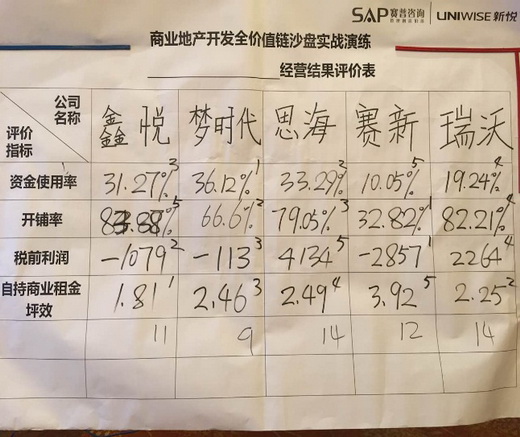 SAP 赛普咨询 UNIWISE 新悦
商业地产开发全价值链沙盘实战演练
经营结果评价表
公司名称 评价指标 鑫悦 梦时代 思海 赛新 瑞沃
资金使用率 31.27% 3 36.12% 1 33.29% 2 10.05% 5 19.24% 4
开铺率 5 66.6% 2 79.05% 3 32.82% 1 82.21% 4
税前利润 -1079 2 -113 3 4134 5 -2857 1 2264 4
自持商业租金坪效 1.81 1 2.46 3 2.49 4 3.92 5 2.25 2
11 9 14 12 14